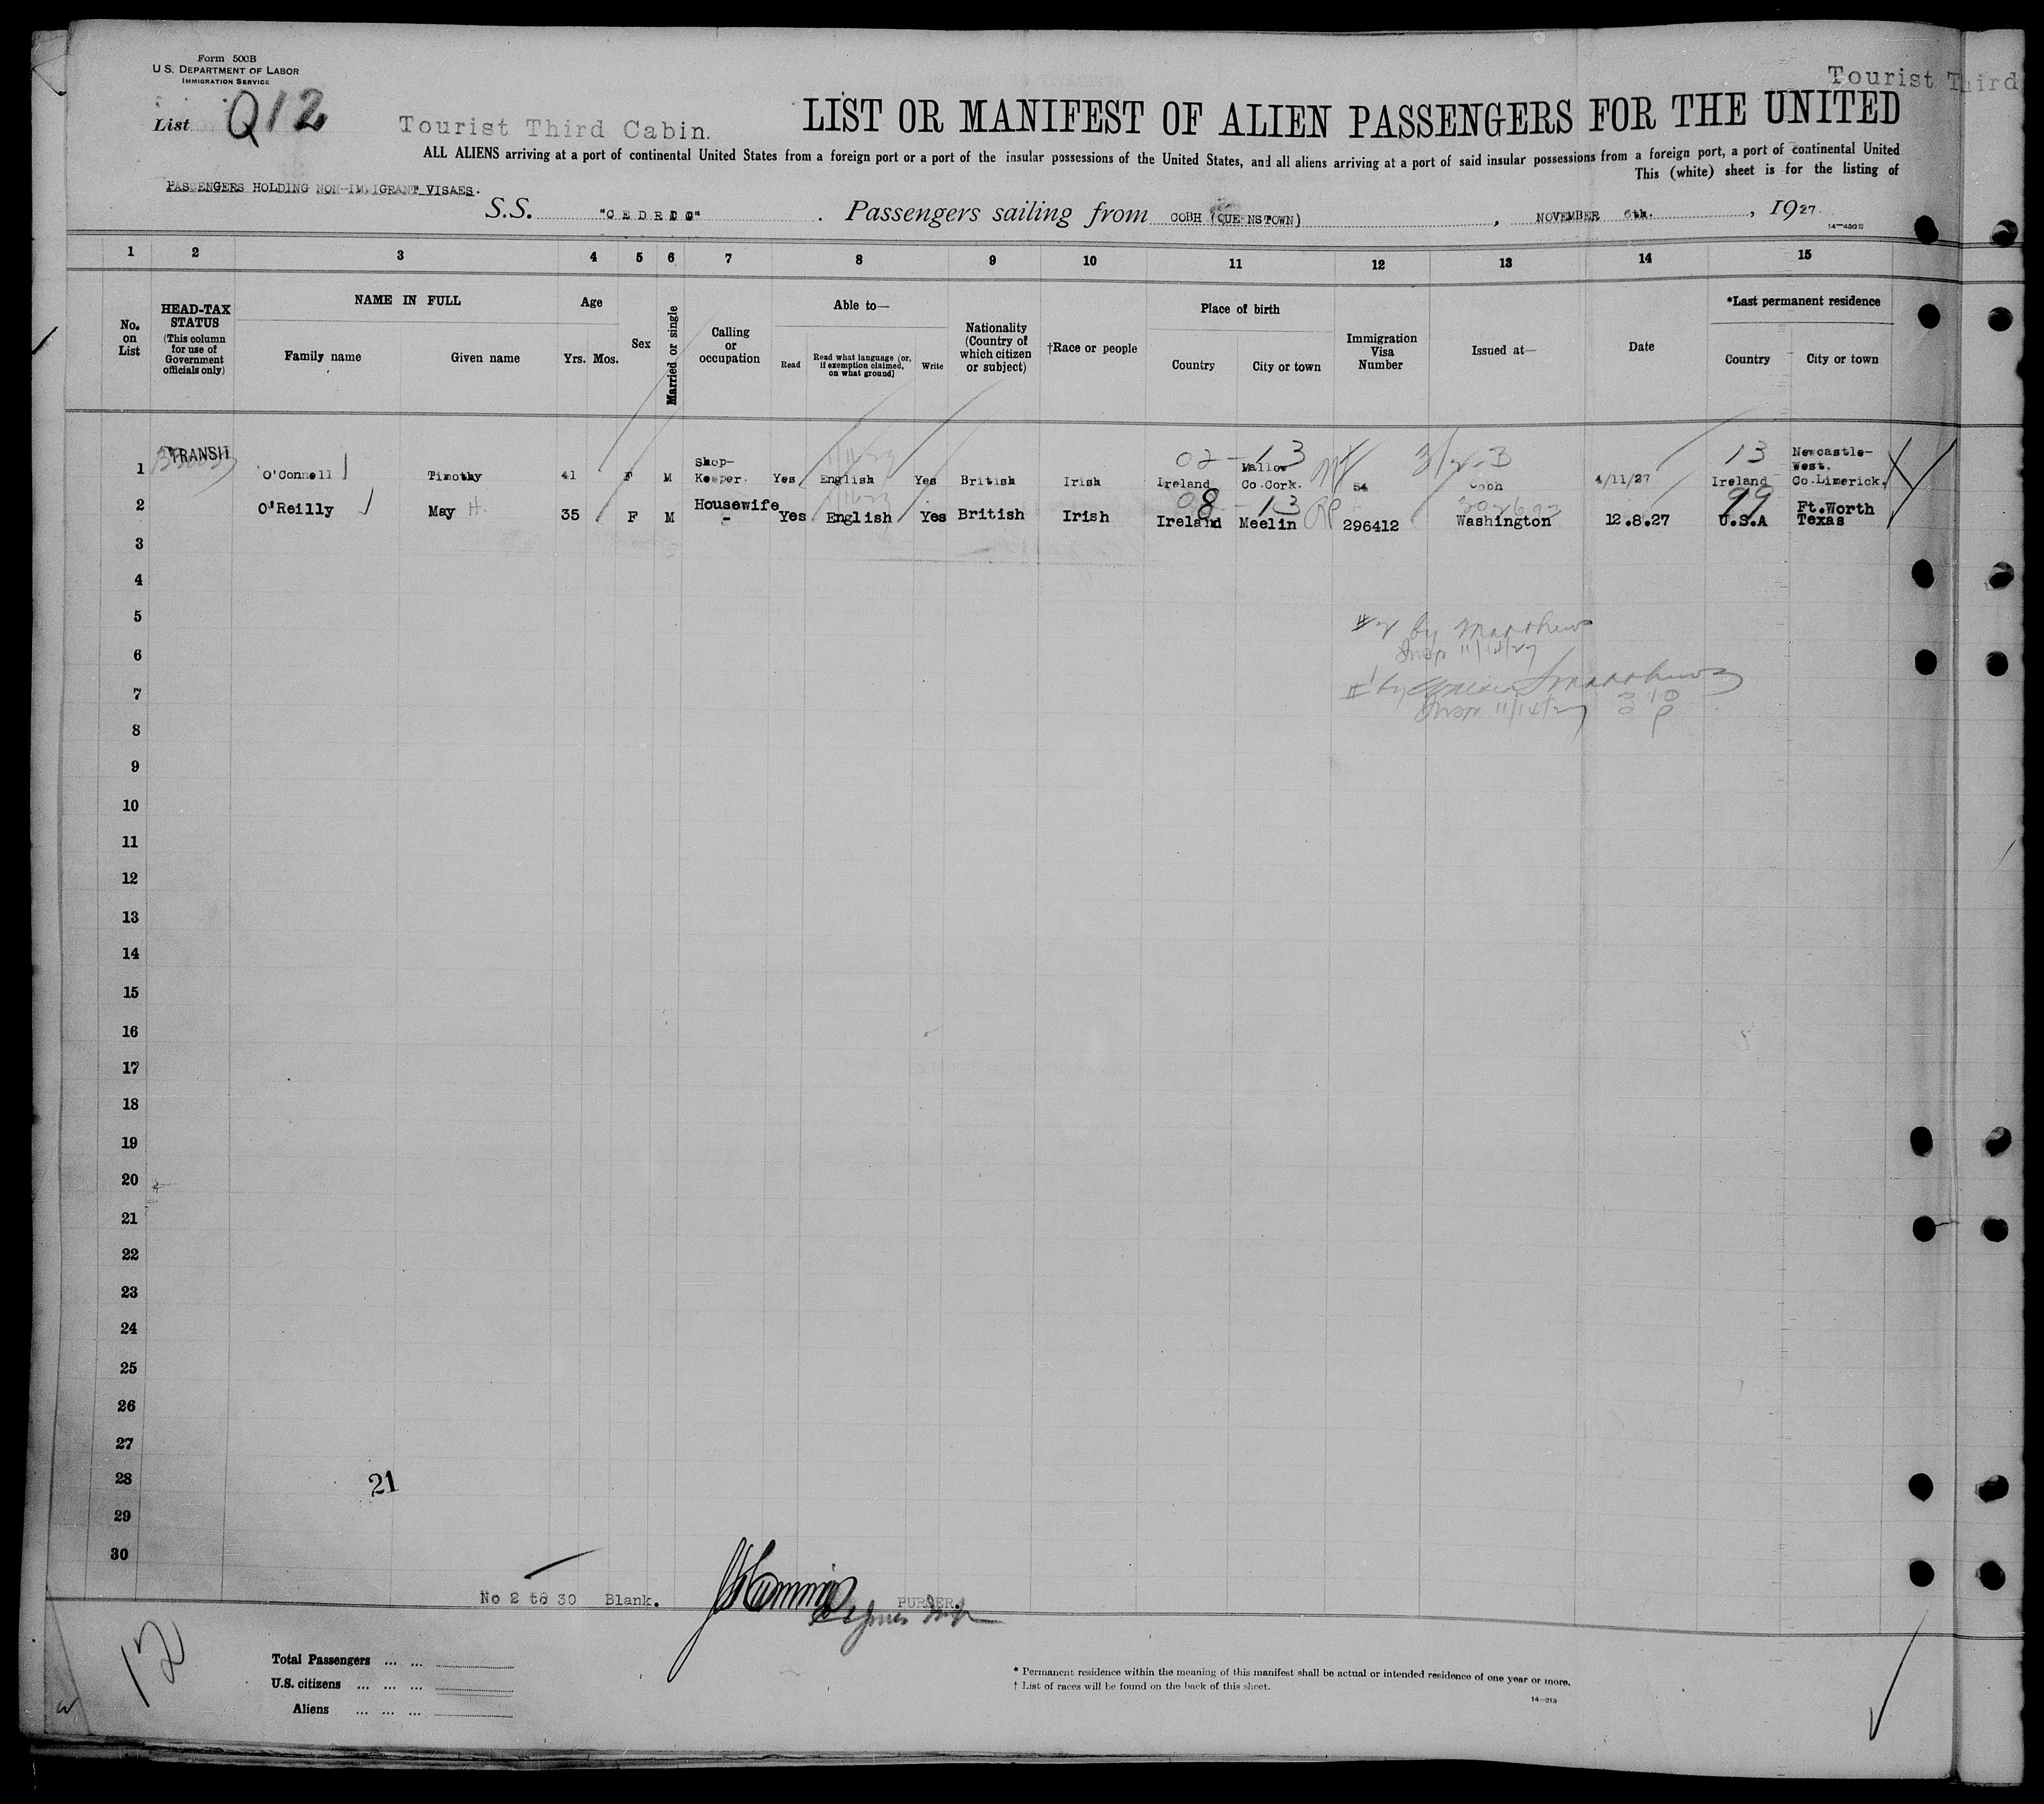 Form 500B
U.S. DEPARTMENT OF LABOR
IMMIGRATION SERVICE
Tourist Third
List Q12
Tourist Third Cabin.
LIST OR MANIFEST OF ALIEN PASSENGERS FOR THE UNITED
ALL ALIENS arriving at a port of continental United States from a foreign port or a port of the insular possessions of the United States, and all aliens arriving at a port of said insular possessions from a foreign port, a port of continental United
This (white) sheet is for the listing of
PASSENGERS HOLDING NON-IMMIGRANT VISAES.
S.S. "CEDRIC". Passengers sailing from COBH (QUEENSTOWN), NOVEMBER 6th., 1927
14-430B
1 2 3 4 5 6 7 8 9 10 11 12 13 14 15
No. on List
HEAD-TAX STATUS
(This column for use of Government officials only)
NAME IN FULL
Family name Given name
Age
Yrs. Mos.
Sex
Married or single
Calling or occupation
Able to—
Read
Read what language (or, if exemption claimed, on what ground)
Write
Nationality (Country of which citizen or subject)
†Race or people
Place of birth
Country City or town
Immigration Visa Number
Issued at—
Date
*Last permanent residence
Country City or town
02 - 13 13
1 TRANSIT O'Connell Timothy 41 F M Shop-Keeper. Yes English Yes British Irish Ireland Mallow Co.Cork. 54 Cobh 4/11/27 Ireland Newcastle-West. Co.Limerick.
08 - 13 99
2 O'Reilly May H. 35 F M Housewife - Yes English Yes British Irish Ireland Meelin 296412 Washington 12.8.27 U.S.A Ft.Worth Texas
3
4
5
#2 by Matthews
6
Insp 11/14/27
7
#1 by Matthews
Insp 11/14/27
8
9
10
11
12
13
14
15
16
17
18
19
20
21
22
23
24
25
26
27
28
21
29
30
No 2 to 30 Blank. PURSER.
12
Total Passengers ... ...
U.S. citizens ... ... ...
Aliens ... ... ...
* Permanent residence within the meaning of this manifest shall be actual or intended residence of one year or more.
† List of races will be found on the back of this sheet.
14-213